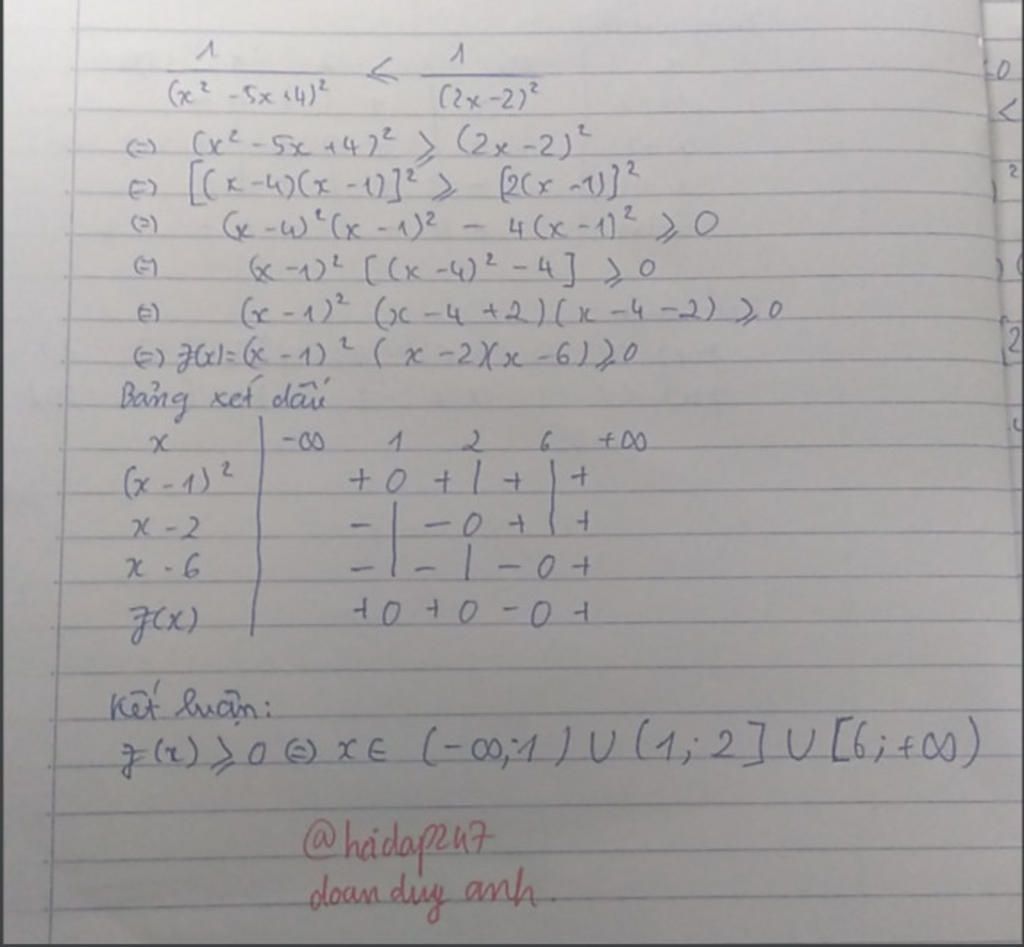 1/(x² - 5x + 4)² ≤ 1/(2x - 2)²
⇔ (x² - 5x + 4)² ≥ (2x - 2)²
⇔ [(x - 4)(x - 1)]² ≥ [2(x - 1)]²
⇔ (x - 4)²(x - 1)² - 4(x - 1)² ≥ 0
⇔ (x - 1)² [(x - 4)² - 4] ≥ 0
⇔ (x - 1)² (x - 4 + 2)(x - 4 - 2) ≥ 0
⇔ f(x) = (x - 1)² (x - 2)(x - 6) ≥ 0
Bảng xét dấu
x | -∞ 1 2 6 +∞
(x - 1)² | + 0 + | + | +
x - 2 | - | - 0 + | +
x - 6 | - | - | - 0 +
f(x) | + 0 + 0 - 0 +
Kết luận:
f(x) ≥ 0 ⇔ x ∈ (-∞; 1) ∪ (1; 2] ∪ [6; +∞)
@hoidap247
doan duy anh.